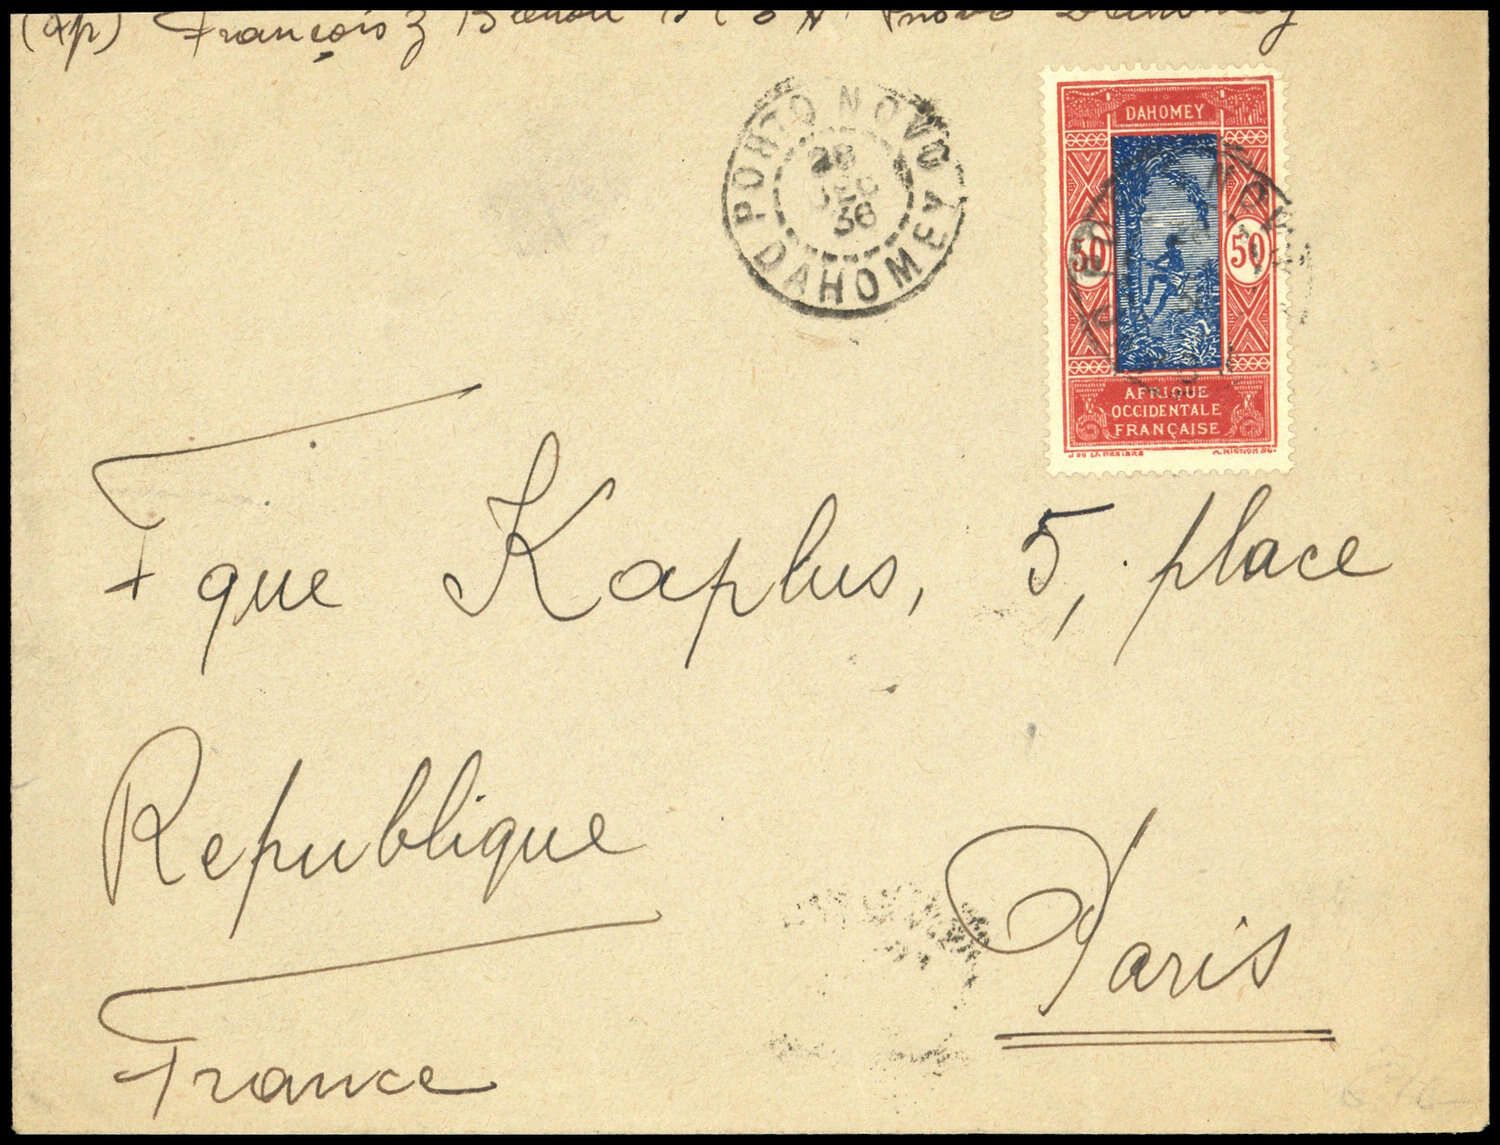 (Exp) François
PORTO NOVO
28
DEC
36
DAHOMEY
DAHOMEY
50 50
AFRIQUE
OCCIDENTALE
FRANÇAISE
Fque Kaplus, 5, place
Republique
Paris
France